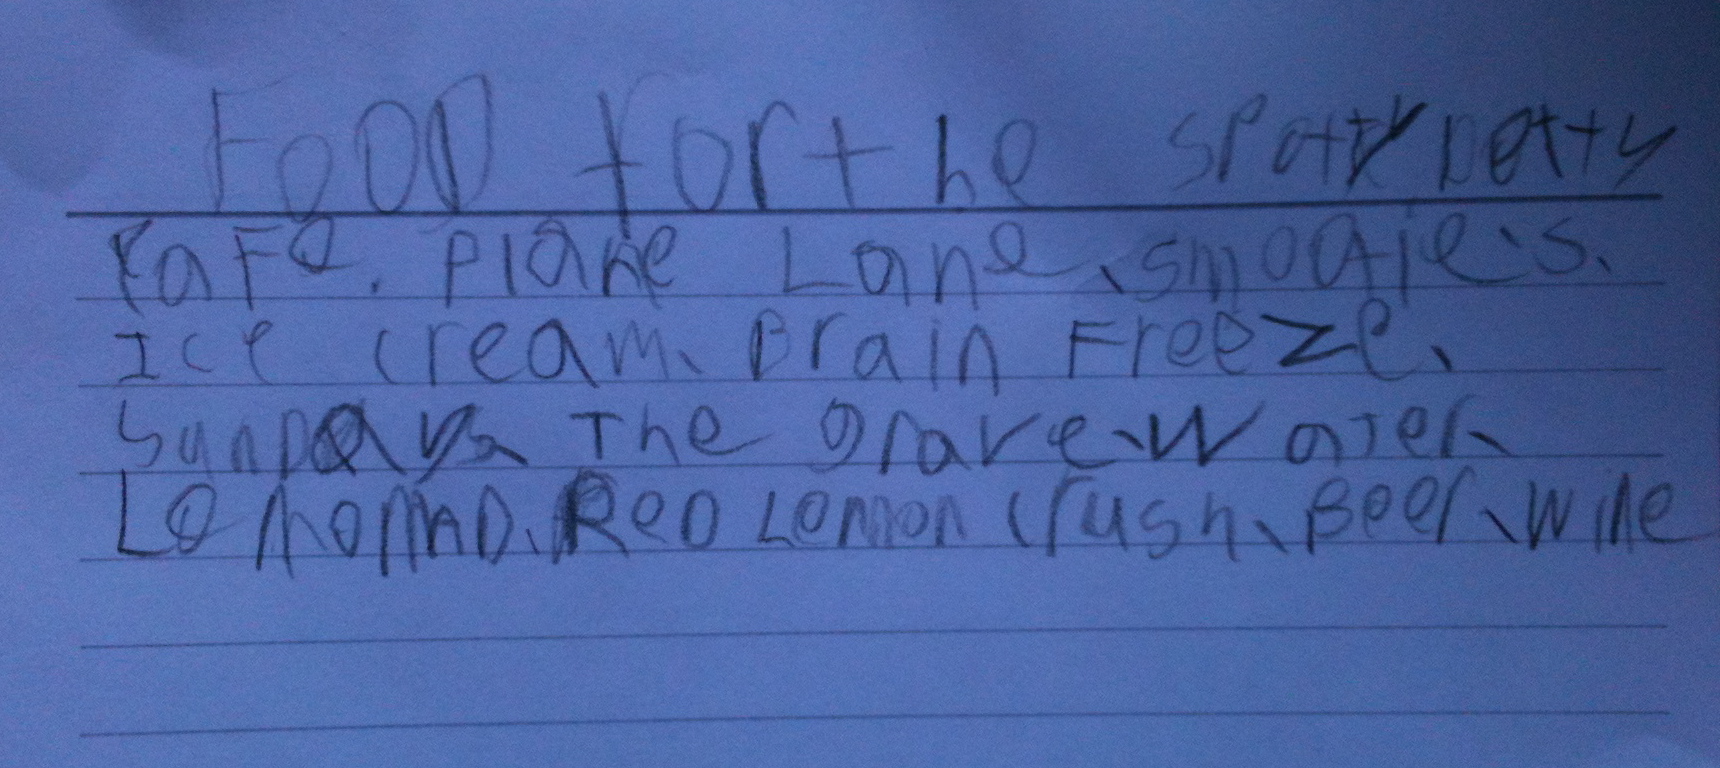 FooD forthe spotty Dotty
KaFe. Plane Lane, smooties,
Ice cream, Brain Freeze,
SunDays The grave, Water,
LemonaD, ReD Lemon Crush, Beer, wine